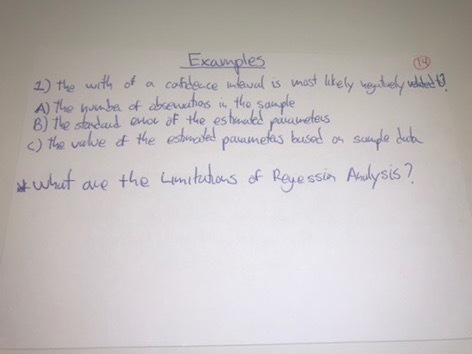 Examples
14
1) The with of a cofidence interval is most likely negatively related to?
A) The number of observations in the sample
B) The standard error of the estimated parameters
C) The value of the estimated parameters based on sample data
* What are the Limitations of Regression Analysis?